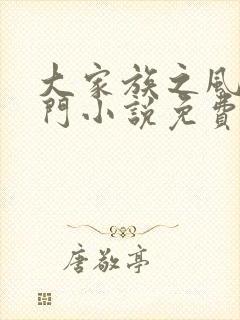 大家族之風
門小說免費
唐敬亭